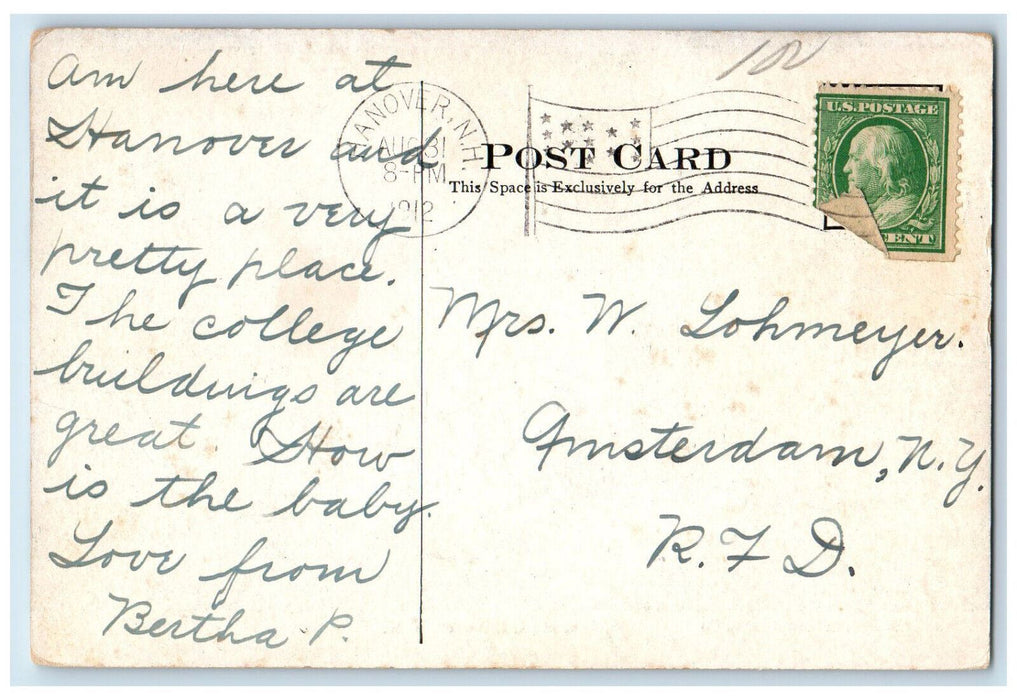 Am here at
Hanover and
it is a very
pretty place.
The college
buildings are
great. How
is the baby.
Love from
Bertha P.
HANOVER, N.H.
AUG 31
8-PM
1912
POST CARD
This Space is Exclusively for the Address
U.S. POSTAGE
CENT
Mrs. W. Lohmeyer.
Amsterdam, N.Y.
R.F.D.